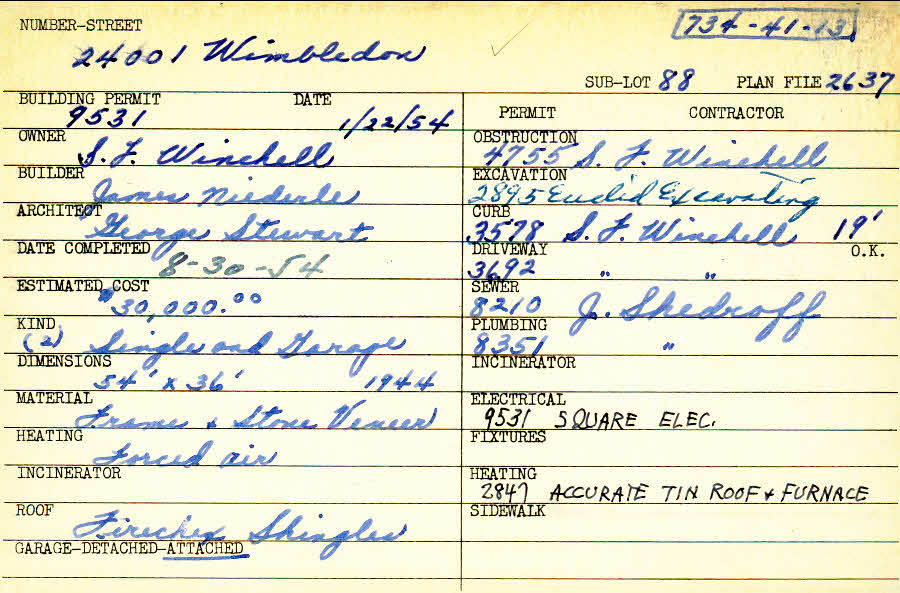 NUMBER-STREET
734-41-13
24001 Wimbledon
SUB-LOT 88 PLAN FILE 2637
BUILDING PERMIT DATE
9531 1/22/54
OWNER
S. F. Winchell
BUILDER
James Niederle
ARCHITECT
George Stewart
DATE COMPLETED
8-30-54
ESTIMATED COST
$30,000.00
KIND
(2) Single and Garage
DIMENSIONS
54' x 36' 1944
MATERIAL
Frame & Stone Veneer
HEATING
Forced air
INCINERATOR
ROOF
Firechex Shingles
GARAGE-DETACHED-ATTACHED
PERMIT CONTRACTOR
OBSTRUCTION
4755 S. F. Winchell
EXCAVATION
2895 Euclid Excavating
CURB
3578 S. F. Winchell 19'
DRIVEWAY O.K.
3692 " "
SEWER
8210 J. Shedroff
PLUMBING
8351 "
INCINERATOR
ELECTRICAL
9531 SQUARE ELEC.
FIXTURES
HEATING
2847 ACCURATE TIN ROOF & FURNACE
SIDEWALK